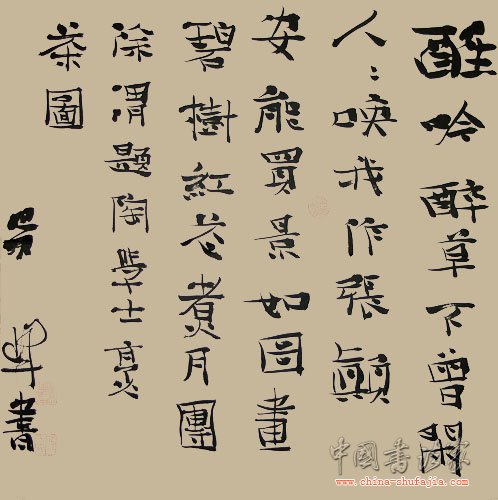 醒吟醉草不曾閑
人々喚我作張顛
安能買景如圖畫
碧樹紅花煮月團
徐渭題陶學士烹
茶圖
書
中國書法家
www.china-shufajia.com